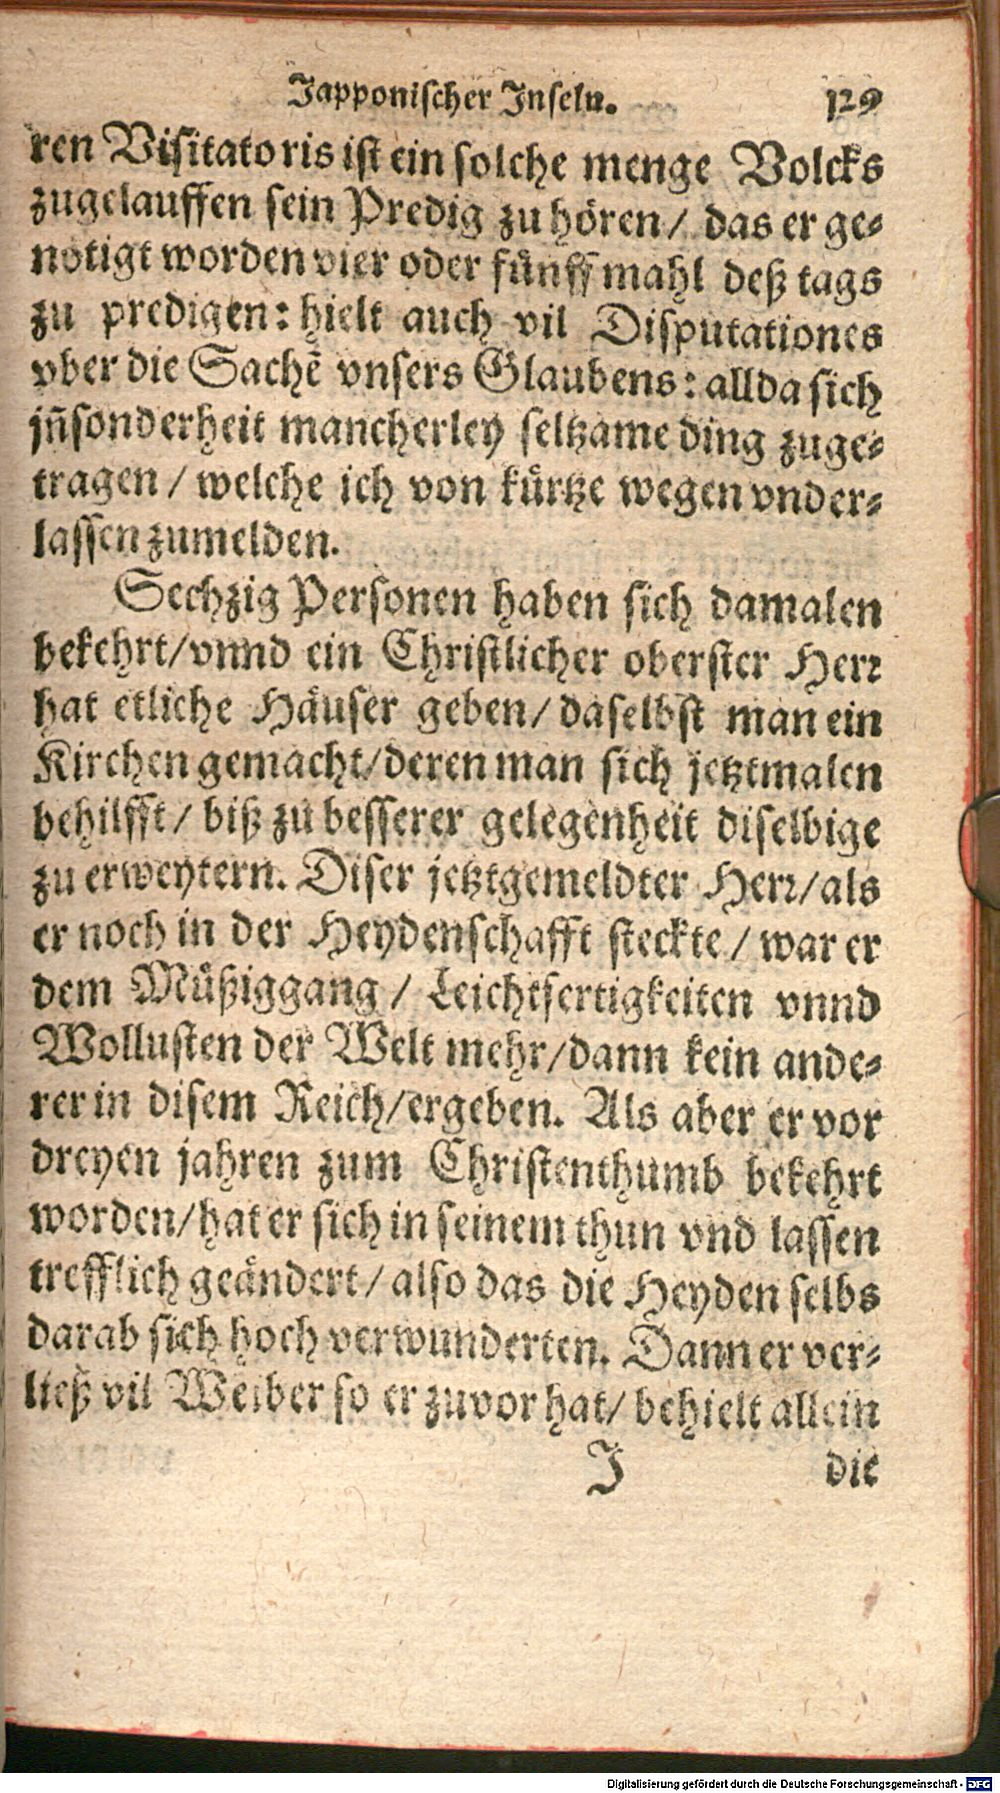 Japponischer Inseln. 129
ren Visitatoris ist ein solche menge Volcks
zugelauffen sein Predig zu hören / das er ge-
nötigt worden vier oder fünff mahl deß tags
zu predigen: hielt auch vil Disputationes
vber die Sachẽ vnsers Glaubens: allda sich
jñsonderheit mancherley seltzame ding zuge-
tragen / welche ich von kürtze wegen vnder-
lassen zumelden.
Sechzig Personen haben sich damalen
bekehrt/vnnd ein Christlicher oberster Herr
hat etliche Häuser geben/ daselbst man ein
Kirchen gemacht/deren man sich jetztmalen
behilfft / biß zu besserer gelegenheit diselbige
zu erweytern. Diser jetztgemeldter Herr/als
er noch in der Heydenschafft steckte / war er
dem Müßiggang / Leichtfertigkeiten vnnd
Wollusten der Welt mehr/dann kein ande-
rer in disem Reich/ergeben. Als aber er vor
dreyen jahren zum Christenthumb bekehrt
worden/hat er sich in seinem thun vnd lassen
trefflich geändert/ also das die Heyden selbs
darab sich hoch verwunderten. Dann er ver-
ließ vil Weiber so er zuvor hat/ behielt allein
J die
Digitalisierung gefördert durch die Deutsche Forschungsgemeinschaft - DFG